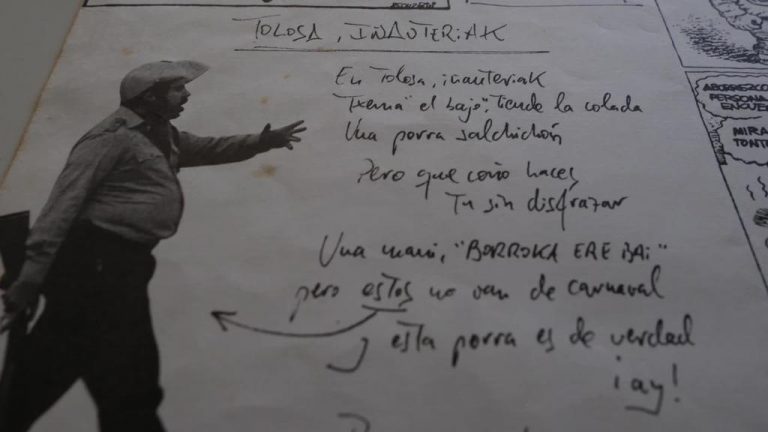 TOLOSA, INAUTERIAK
En Tolosa, inauteriak
Txema "el bajo", tiende la colada
Una porra salchichón
Pero que coño haces
Tu sin disfrazar
Una mani, "BORROKA ERE BAI"
pero estos no van de carnaval
esta porra es de verdad
¡ay!
ABORREZCO
PERSONA
ENCUE
MIRA
TONT